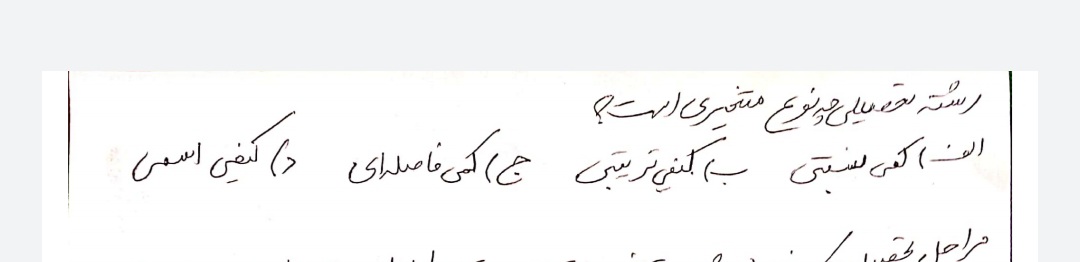 رشته تحصیلی چه نوع متغیری است؟
الف) کمی نسبتی ب) کیفی ترتیبی ج) کمی فاصله‌ای د) کیفی اسمی
مراحل تحقیق